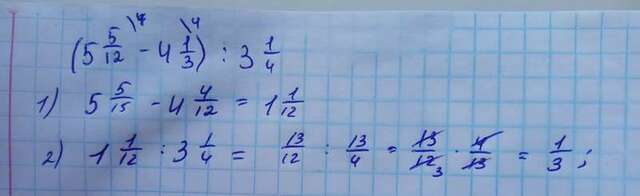 (5 5/12 \4 - 4 1/3 \4) : 3 1/4
1) 5 5/15 - 4 4/12 = 1 1/12
2) 1 1/12 : 3 1/4 = 13/12 : 13/4 = 13/12 3 · 4/13 = 1/3 ;